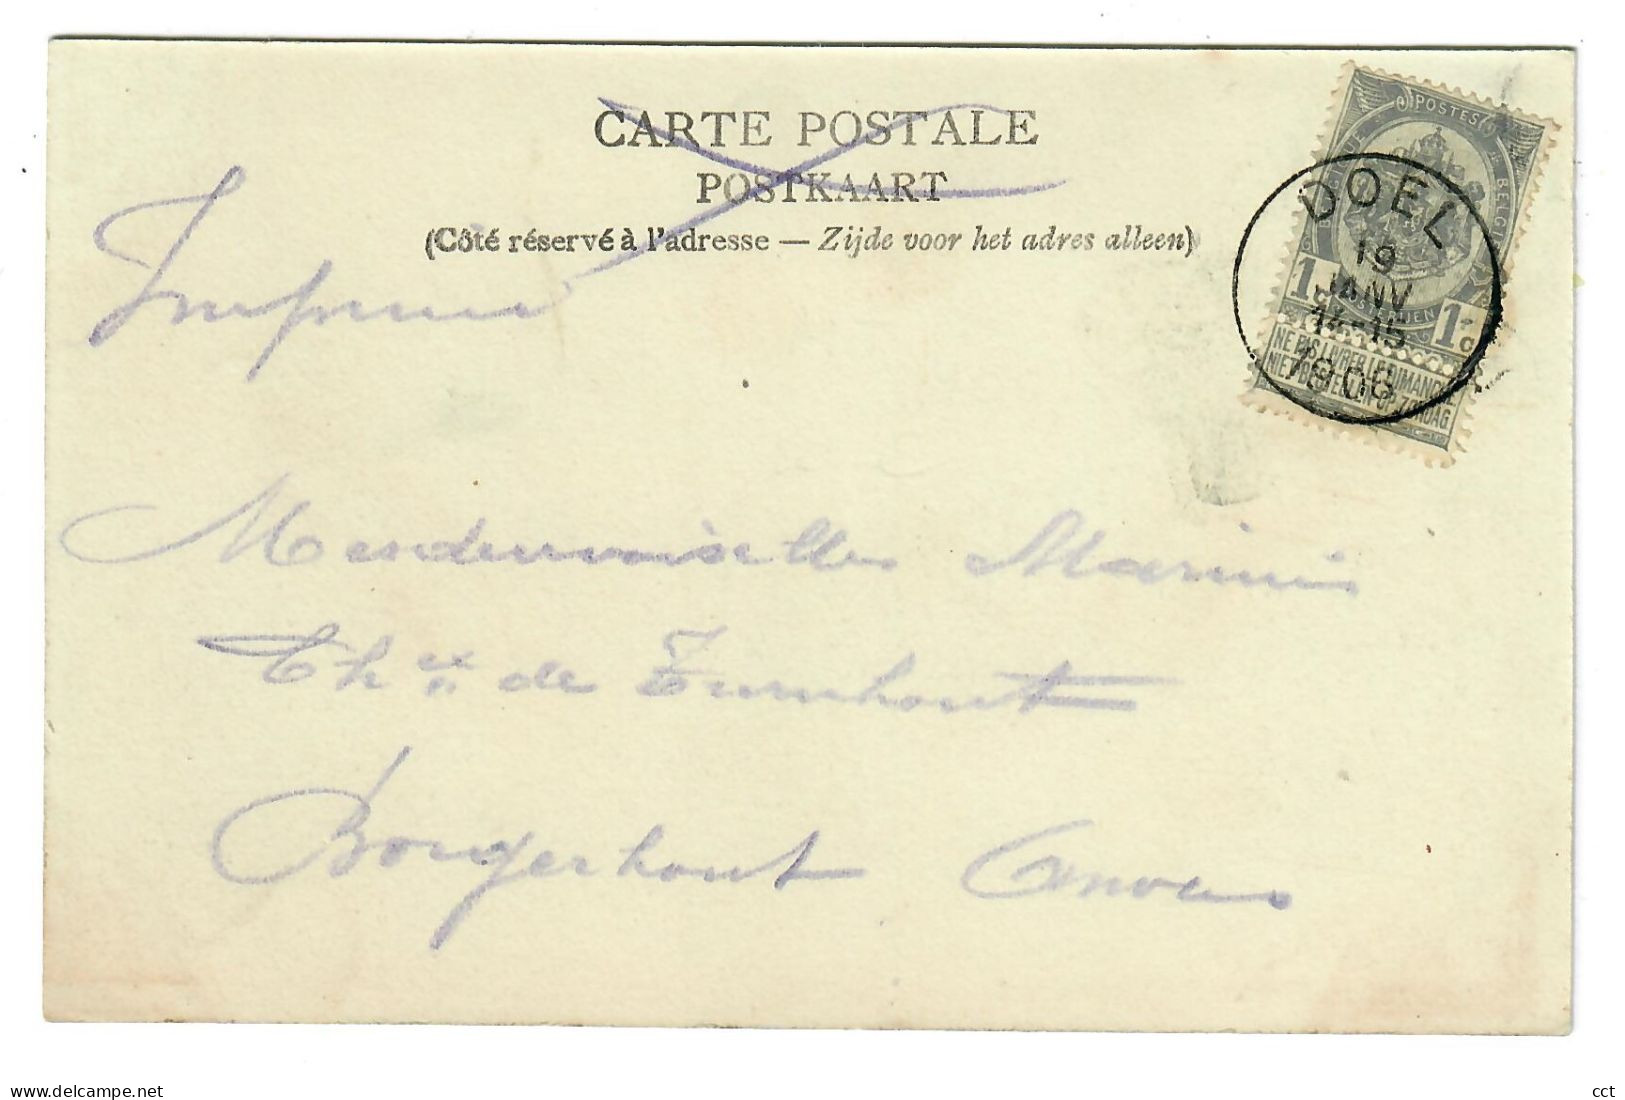 CARTE POSTALE
POSTKAART
(Côté réservé à l'adresse — Zijde voor het adres alleen)
Imprimé
POSTES
BELGIQUE BELGIE
POSTERIJEN
1c 1c
NE PAS LIVRER LE DIMANCHE
NIET BESTELLEN OP ZONDAG
DOEL
19
JANV
14-15
1906
Mesdemoiselles Marinis
Chée de Turnhout
Borgerhout Anvers
© Delcampe.net
cct